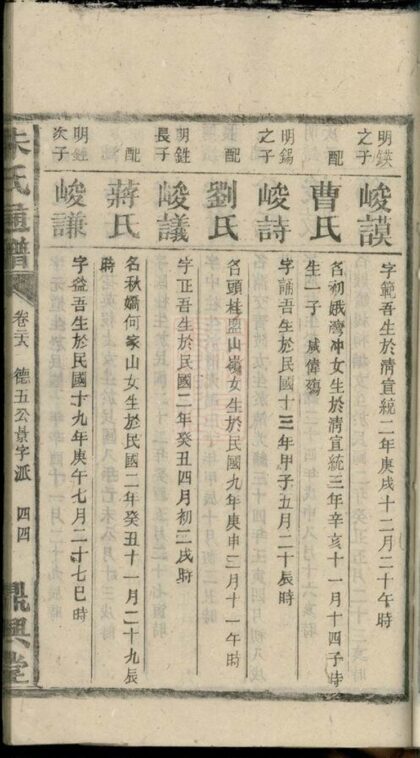 明鍈之子
峻謨
字範吾生於清宣統二年庚戌十二月二十午時
配
曹氏
名初娥灣冲女生於清宣統三年辛亥十一月十四子時
生一子 咸偉殤
明錫之子
峻詩
字誦吾生於民國十三年甲子五月二十辰時
配
劉氏
名頭桂盟山嶺女生於民國九年庚申三月十一午時
明鉎長子
峻議
字正吾生於民國二年癸丑四月初二戌時
配
蔣氏
名秋嬌何家山女生於民國二年癸丑十一月二十九辰
時
明鉎次子
峻謙
字益吾生於民國十九年庚午七月二十七巳時
朱氏通譜
卷二六 德五公景字派 四四
鼎興堂